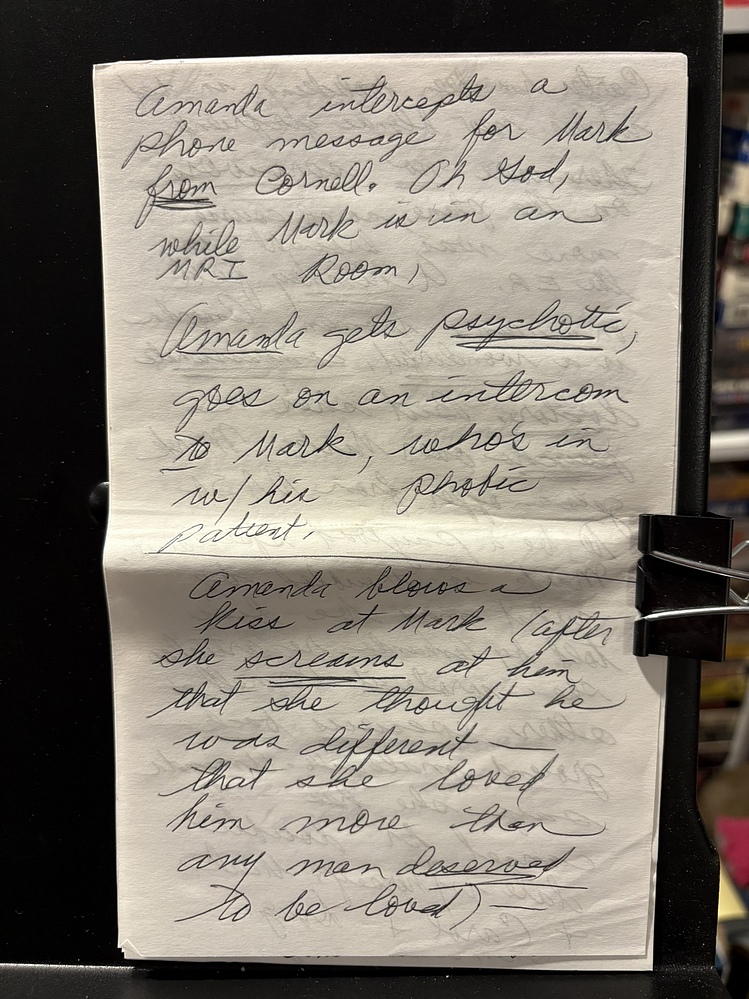 Amanda intercepts a
phone message for Mark
from Cornell. Oh God,
while Mark is in an
MRI Room,
Amanda gets psychotic,
goes on an intercom
to Mark, who's in
w/ his phobic
patient.
Amanda blows a
kiss at Mark (after
she screams at him
that she thought he
was different —
that she loved
him more than
any man deserved
to be loved) —